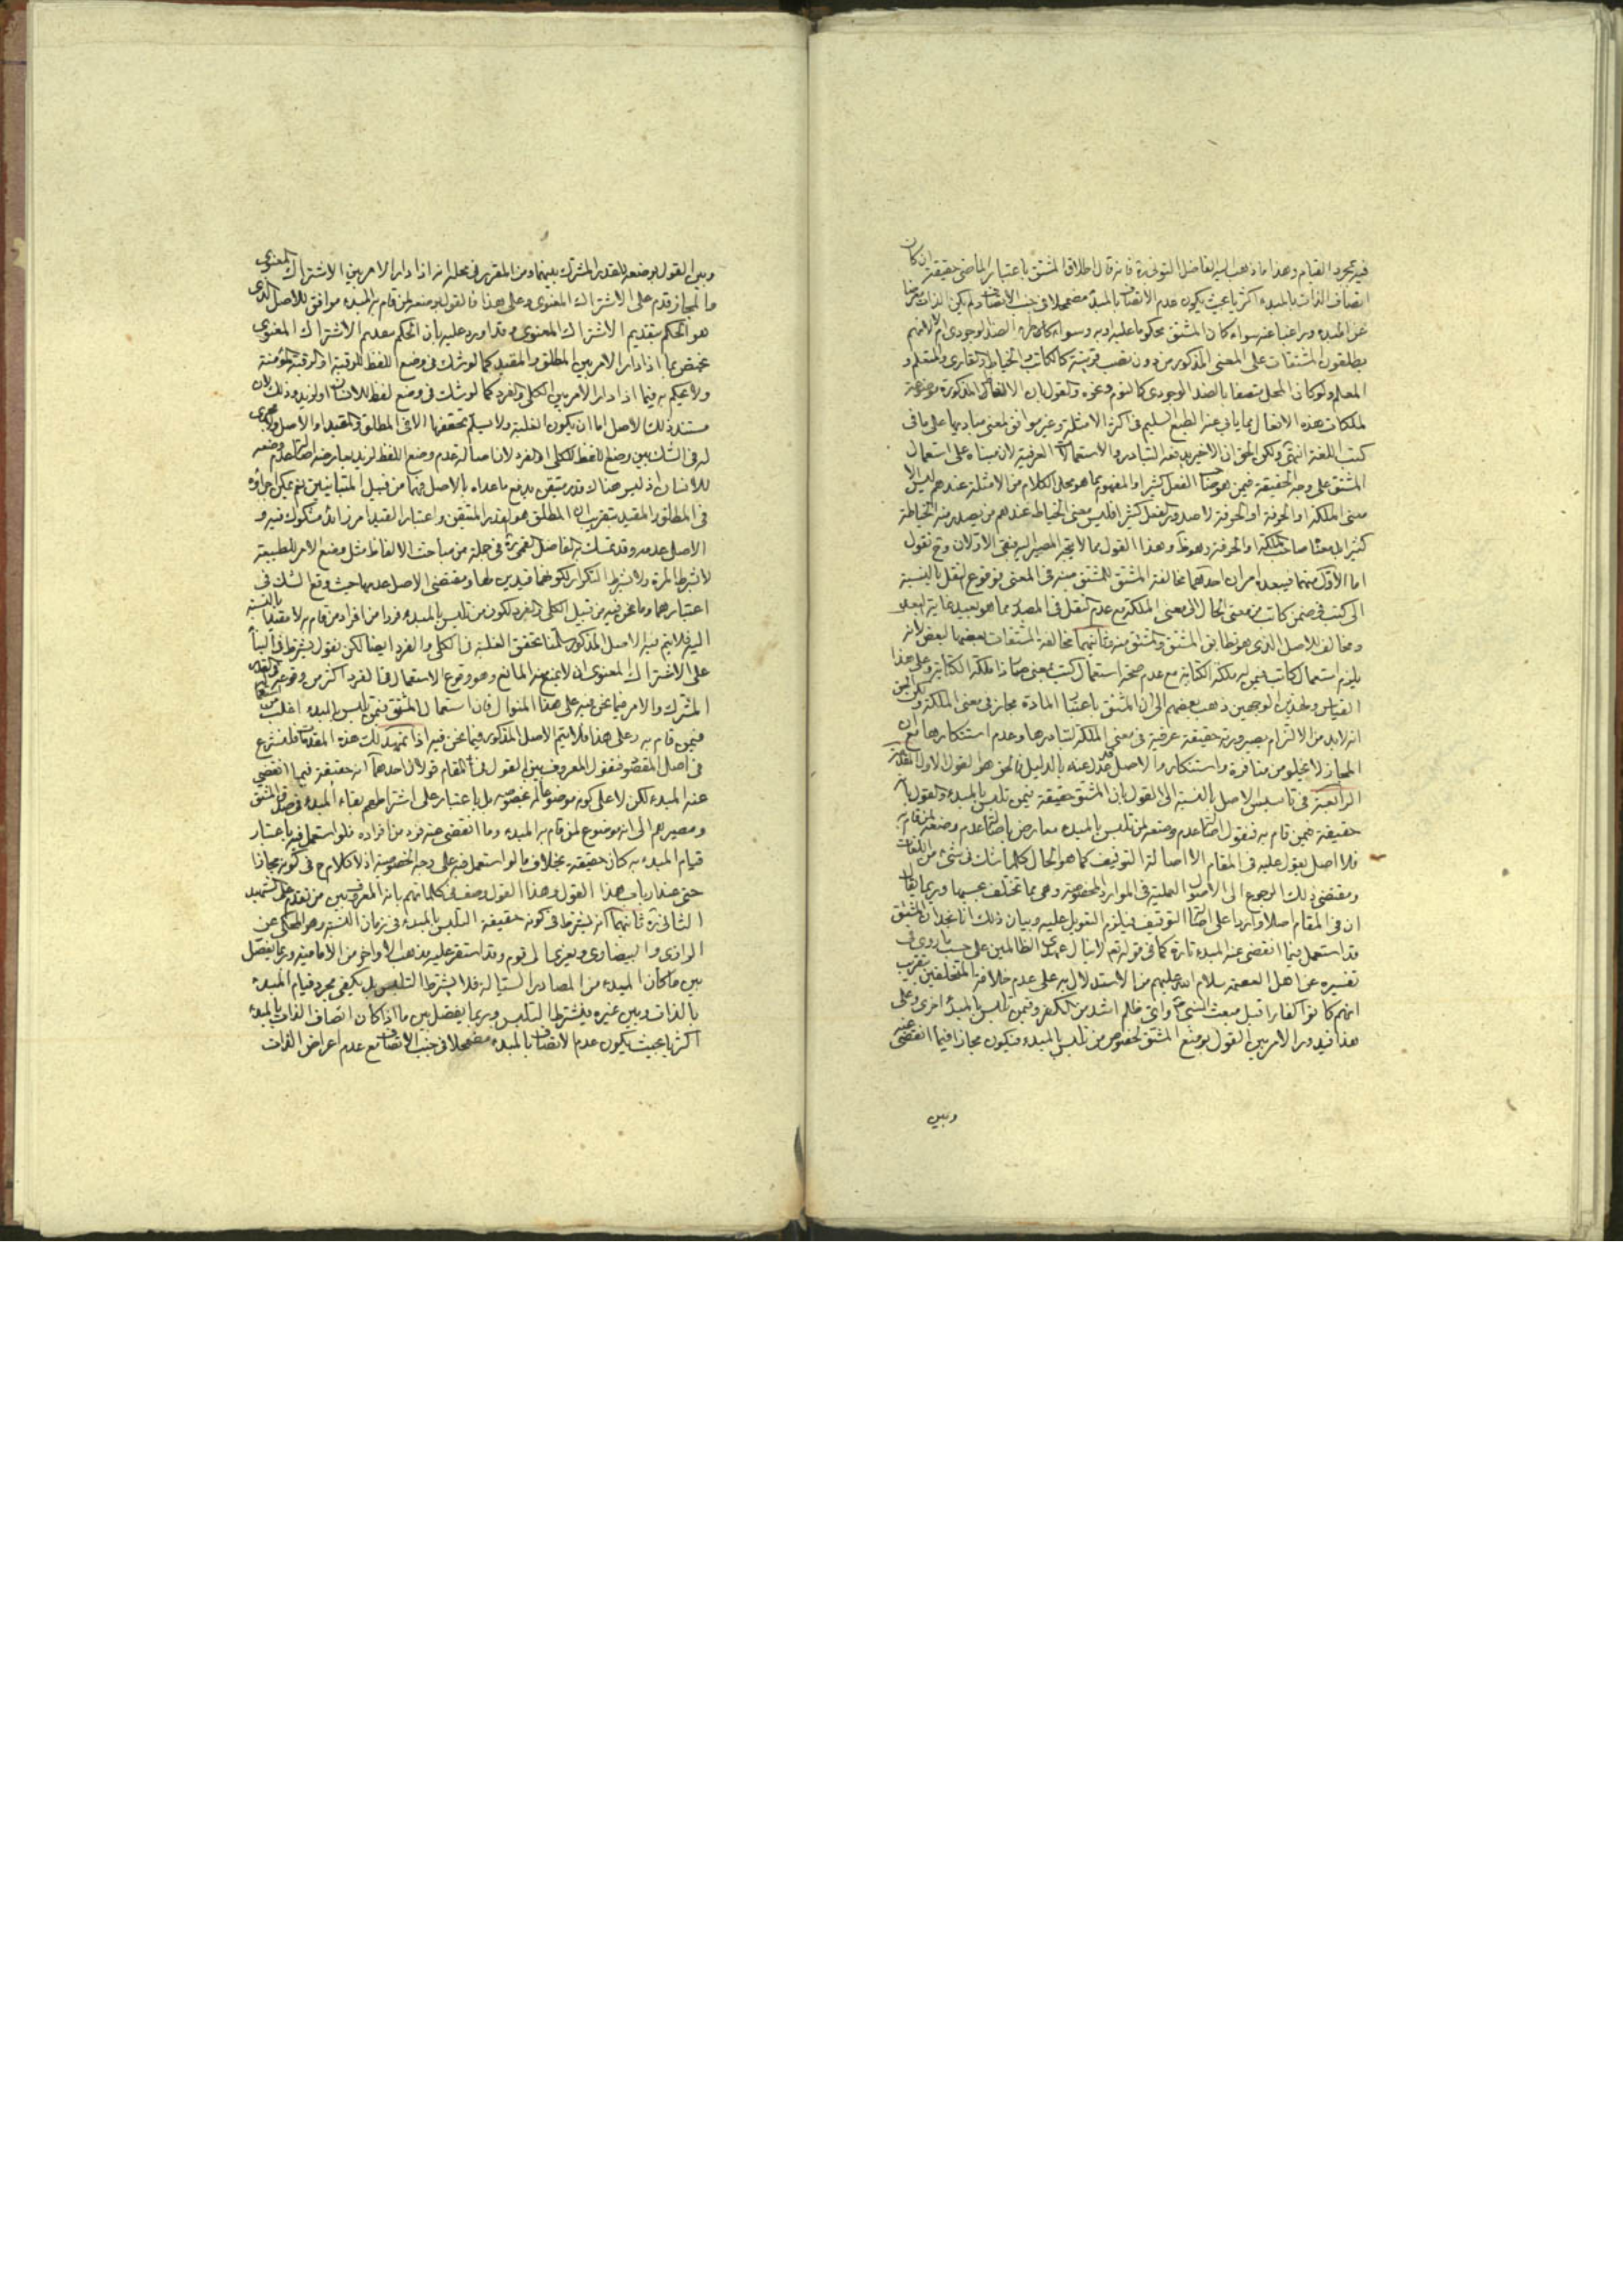 فيه مجرد القيام وهذا ما ذهب اليه الفاضل التوني ره فانه قال اطلاق المشتق باعتبار الماضي حقيقة ان كان
اتصاف الذات بالمبدء اكثريا بحيث يكون عدم الاتصاف بالمبدء مضمحلا في جنب الاتصاف ولم يكن الذات معرضا
عن المبدء وراغبا عنه سواء كان المشتق محكوما عليه او به وسواء طرء الضد الوجودي ام لا لانهم
يطلقون المشتقات على المعنى المذكور من دون نصب قرينة كالكاتب والخياط والقاري والمتعلم و
المعلم ولو كان المحل متصفا بالضد الوجودي كالنوم ونحوه والقول بان الالفاظ المذكورة موضوعة
لملكات هذه الافعال مما يابى عنه الطبع السليم في اكثر الامثلة وغير موافق لمعنى مباديها على ما في
كتب اللغة انتهى ولكن الحق ان الاخير يدفعه التبادر والاستعمالات العرفية لان مبناه على استعمال
المشتق على وجه الحقيقة فيمن هو صاحب الفعل كثيرا والمفهوم مما هو محل الكلام من الامثلة عندهم ليس الا
معنى الملكة او الحرفة لا صدور الفعل كثيرا فليس معنى الخياط عندهم من يصدر منه الخياطة
كثيرا بل معناه صاحب الملكة او الحرفة وهو ظ وهذا القول مما لا يتجه المصير اليه بقي الاولان وح نقول
اما الاول منهما فيبعده امران احدهما مخالفة المشتق للمشتق منه في المعنى بوقوع النقل بالنسبة
الى كتب في ضمن كاتب من معنى الحال الى معنى الملكة مع عدم النقل في المصدر مما هو بعيد غاية البعد
ومخالف للاصل الذي هو تطابق المشتق والمشتق منه وثانيهما مخالفة المشتقات بعضها لبعض لانه
يلزم استعمال كاتب فيمن له ملكة الكتابة مع عدم صحة استعمال كتب بمعنى صار ذا ملكة الكتابة وعلى هذا
القياس ولهذين الوجهين ذهب بعضهم الى ان المشتق باعتبار المادة مجاز في معنى الملكة ولكن الحق
انه لابد من الالتزام بصيرورته حقيقة عرفية في معنى الملكة لتبادرها وعدم استنكارها مع ان
المجاز لا يخلو من منافرة واستنكار والاصل قد عدل عنه بالدليل فالحق هو القول الاول المقدمة
الرابعة في تاسيس الاصل بالنسبة الى القول بان المشتق حقيقة فيمن تلبس بالمبدء والقول بانه
حقيقة فيمن قام به فنقول اصالة عدم وضعه لمن تلبس بالمبدء معارض باصالة عدم وضعه لمن قام به
فلا اصل يعول عليه في المقام الا اصالة التوقيف كما هو الحال كلما شك في شيء من اللغات
ومقتضى ذلك الرجوع الى الاصول العملية في الموارد المخصوصة وهي مما تختلف بحسبها وربما يقال
ان في المقام اصلا واردا على اصالة التوقيف فيلزم التعويل عليه وبيان ذلك انا نجد ان المشتق
قد استعمل فيما انقضى عنه المبدء تارة كما في قوله تعالى لا ينال عهدي الظالمين على حسب ما روى في
تفسيره عن اهل العصمة سلام الله عليهم من الاستدلال به على عدم خلافة المتخلفين بتقريب
انهم كانوا كفارا قبل مبعث النبي ص واي ظلم اشد من الكفر وفيمن تلبس بالمبدء اخرى وعلى
هذا فيدور الامر بين القول بوضع المشتق لخصوص من تلبس بالمبدء فيكون مجازا فيما انقضى عنه
وبين
وبين القول بوضعه للقدر المشترك بينهما ومن المقرر في محله انه اذا دار الامر بين الاشتراك المعنوي
والمجاز قدم على الاشتراك المعنوي وعلى هذا فالقول بوضعه لمن قام به المبدء موافق للاصل الذي
هو الحكم بتقديم الاشتراك المعنوي وقد اورد عليه بان الحكم بتقديم الاشتراك المعنوي
مختص بما اذا دار الامر بين المطلق والمقيد كما لو شك في وضع اللفظ للرقبة او الرقبة المؤمنة
ولا يحكم به فيما اذا دار الامر بين الكلي والفرد كما لو شك في وضع لفظ للانسان او لزيد وذلك لان
مستند ذلك الاصل اما ان يكون الغلبة ولا نسلم تحققها الا في المطلق والمقيد او الاصل ولا مجرى
له في الشك بين وضع اللفظ للكلي او الفرد لان اصالة عدم وضع اللفظ لزيد يعارضه اصالة عدم وضعه
للانسان اذ ليس هناك قدر متيقن يدفع ما عداه بالاصل فهما من قبيل المتباينين نعم يمكن اجراؤه
في المطلق والمقيد بتقريب ان المطلق هو القدر المتيقن واعتبار القيد امر زائد مشكوك فيه و
الاصل عدمه وقد تمسك به الفاضل القمي ره في جملة من مباحث الالفاظ مثل وضع الامر للطبيعة
لا بشرط المرة ولا بشرط التكرار لكونهما قيدين لها ومقتضى الاصل عدمهما حيث وقع الشك في
اعتبارهما وما نحن فيه من قبيل الكلي والفرد لكون من تلبس بالمبدء فردا من افراد من قام به لا مقيدا بالنسبة
اليه فلا يتم فيه الاصل المذكور سلمنا تحقق الغلبة في الكلي والفرد ايضا لكن نقول يشترط في البناء
على الاشتراك المعنوي ان لا يمنع منه المانع وهو وقوع الاستعمال في الفرد اكثر من وقوعه في القدر
المشترك والامر فيما نحن فيه على هذا المنوال فان استعمال المشتق فيمن تلبس بالمبدء اغلب من استعماله
فيمن قام به وعلى هذا فلا يتم الاصل المذكور فيما نحن فيه اذا تمهد لك هذه المقدمات فلنشرع
في اصل المقصود فنقول المعروف بين القول في المقام قولان احدهما انه حقيقة فيما انقضى
عنه المبدء لكن لا على كونه موضوعا له بخصوصه بل باعتبار على اشتراطهم بقاء المبدء في صدق المشتق
ومصيرهم الى انه موضوع لمن قام به المبدء وما انقضى عنه فرد من افراده فلو استعمل فيه باعتبار
قيام المبدء به كان حقيقة بخلاف ما لو استعمل فيه على وجه الخصوصية اذ لا كلام ح في كونه مجازا
حتى عند ارباب هذا القول وهذا القول وصف في كلماتهم بانه المعروف بين من تقدم على الشهيد
الثاني ره ثانيهما انه يشترط في كونه حقيقة التلبس بالمبدء في زمان النسبة وهو المحكي عن
الرازي والبيضاوي ويعزى الى قوم وقد استقر عليه مذهب الاواخر من الامامية وربما يفصل
بين ما كان المبدء من المصادر السيالة فلا يشترط التلبس بل يكفي مجرد قيام المبدء
بالذات وبين غيره فيشترط التلبس وربما يفصل بين ما اذا كان اتصاف الذات بالمبدء
اكثريا بحيث يكون عدم الاتصاف بالمبدء مضمحلا في جنب الاتصاف مع عدم اعراض الذات